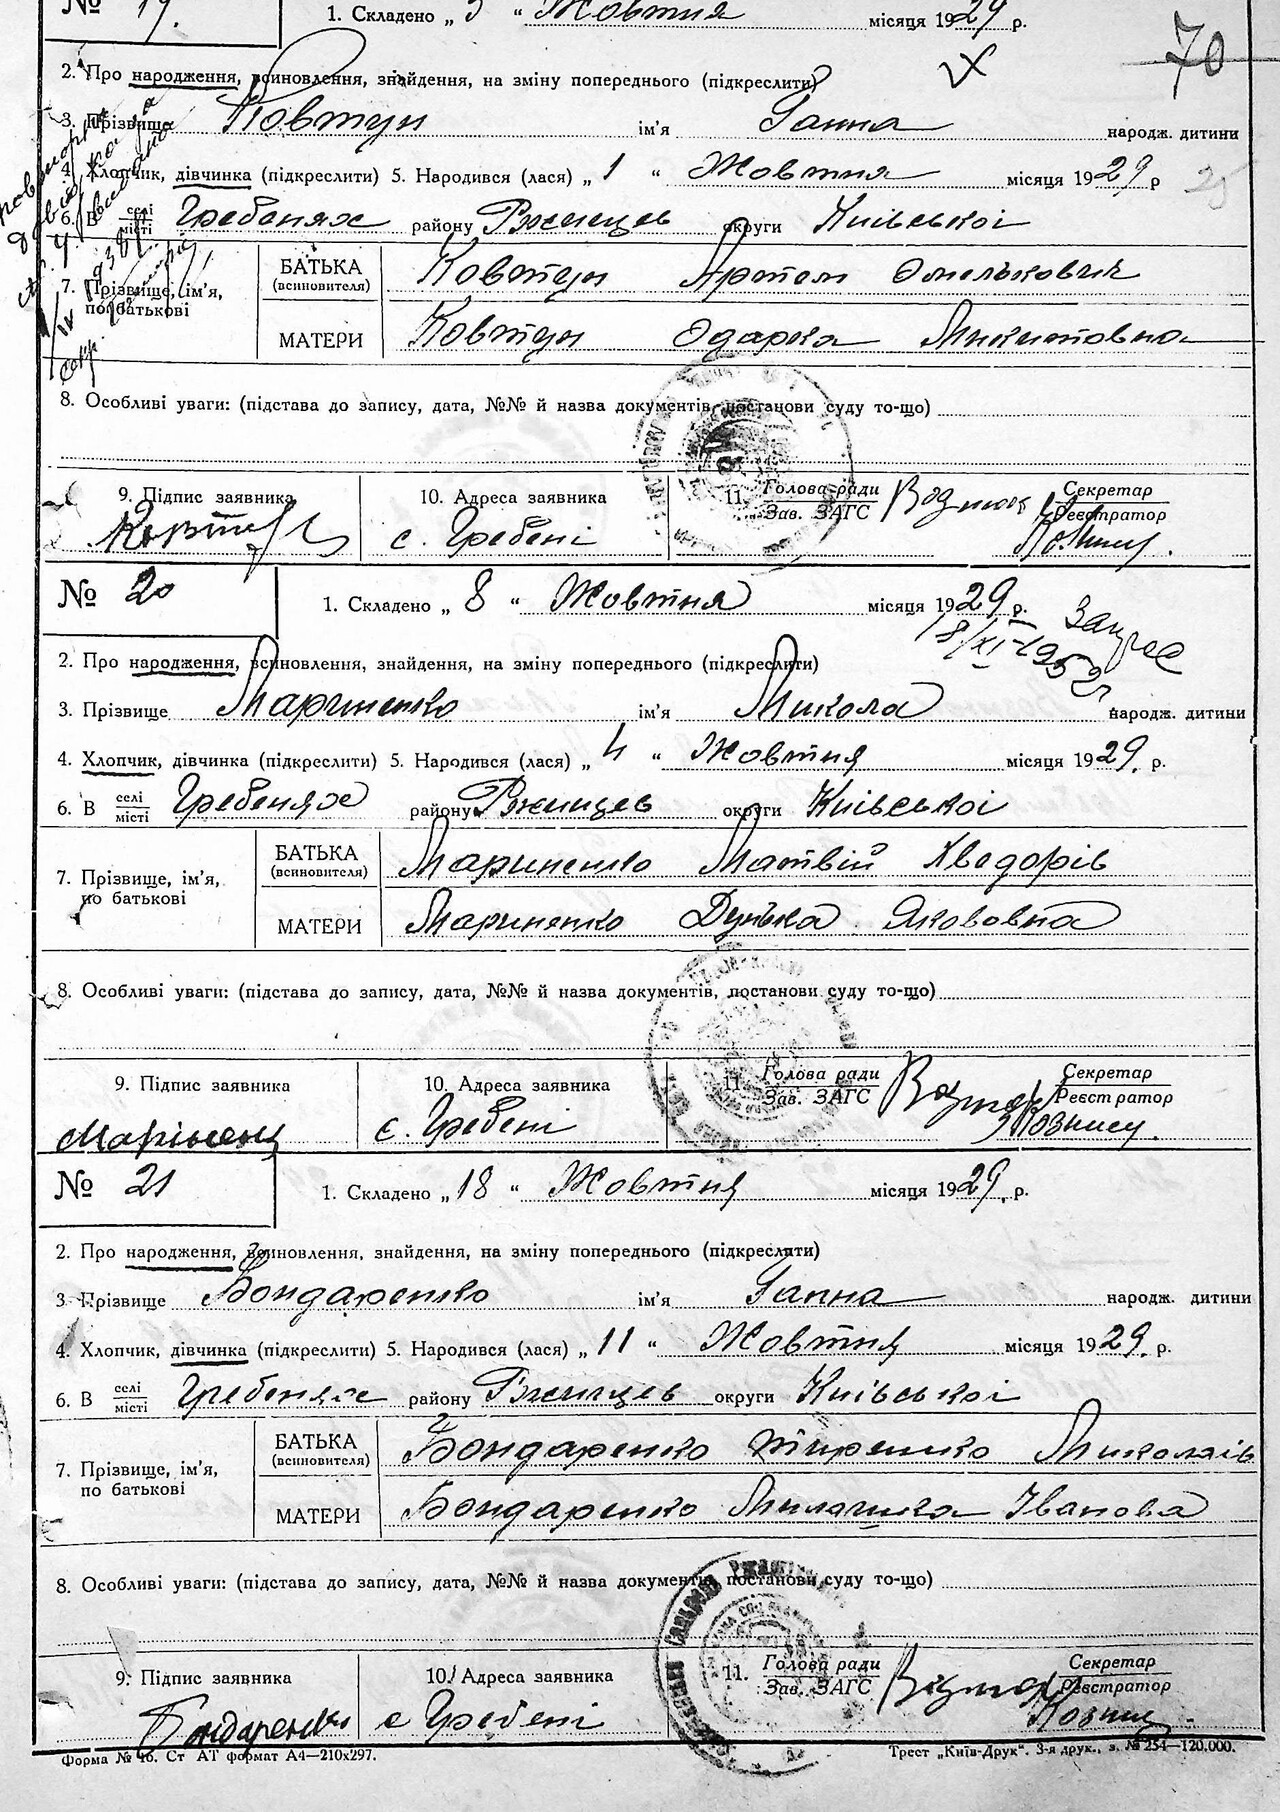 № 19. 1. Складено „ 5 “ Жовтня місяця 1929 р.
70
2. Про народження, всиновлення, знайдення, на зміну попереднього (підкреслити)
3. Прізвище Ковтун ім'я Ганна народж. дитини
4. Хлопчик, дівчинка (підкреслити) 5. Народився (лася) „ 1 “ Жовтня місяця 1929 р
25
6. В селі/місті Гребенях району Ржищев округи Київської
7. Прізвище, ім'я, по батькові
БАТЬКА (всиновителя) Ковтун Артем Омелькович
МАТЕРИ Ковтун Одарка Микитовна
8. Особливі уваги: (підстава до запису, дата, №№ й назва документів, постанови суду то-що)
9. Підпис заявника 10. Адреса заявника 11. Голова ради/Зав. ЗАГС Секретар/Реєстратор
Ковтун с. Гребені
№ 20 1. Складено „ 8 “ Жовтня місяця 1929 р.
2. Про народження, всиновлення, знайдення, на зміну попереднього (підкреслити)
3. Прізвище Мариненко ім'я Микола народж. дитини
4. Хлопчик, дівчинка (підкреслити) 5. Народився (лася) „ 4 “ Жовтня місяця 1929. р.
6. В селі/місті Гребенях району Ржищев округи Київської
7. Прізвище, ім'я, по батькові
БАТЬКА (всиновителя) Мариненко Матвій Хведорів
МАТЕРИ Мариненко Дунька Якововна
8. Особливі уваги: (підстава до запису, дата, №№ й назва документів, постанови суду то-що)
9. Підпис заявника 10. Адреса заявника 11. Голова ради/Зав. ЗАГС Секретар/Реєстратор
Маріненк с. Гребені
№ 21 1. Складено „ 18 “ Жовтня місяця 1929. р.
2. Про народження, всиновлення, знайдення, на зміну попереднього (підкреслити)
3. Прізвище Бондаренко ім'я Ганна народж. дитини
4. Хлопчик, дівчинка (підкреслити) 5. Народився (лася) „ 11 “ Жовтня місяця 1929. р.
6. В селі/місті Гребенях району Ржищев округи Київської
7. Прізвище, ім'я, по батькові
БАТЬКА (всиновителя) Бондаренко Миколаїв
МАТЕРИ Бондаренко Милашка Іванова
8. Особливі уваги: (підстава до запису, дата, №№ й назва документів, постанови суду то-що)
9. Підпис заявника 10. Адреса заявника 11. Голова ради/Зав. ЗАГС Секретар/Реєстратор
Бондаренко с Гребені
Форма № 16. Ст АТ формат А4—210x297. Трест „Київ-Друк“. 3-я друк., з. № 254—120.000.